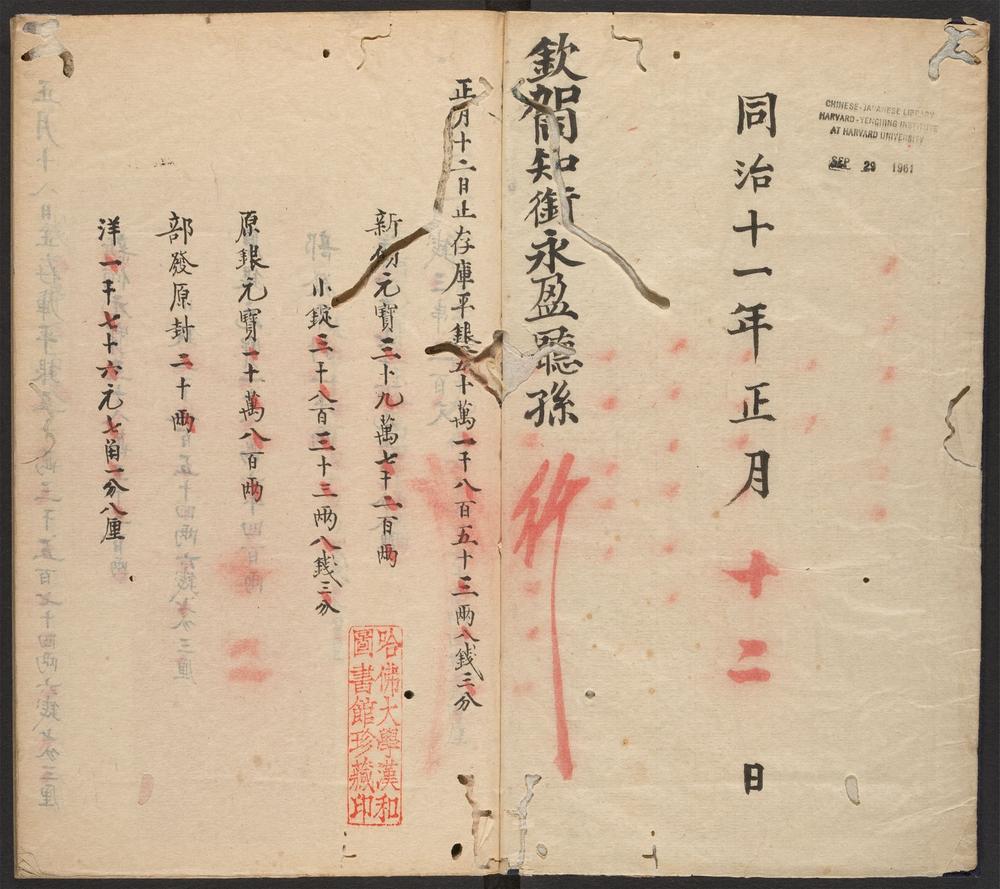 CHINESE-JAPANESE LIBRARY
HARVARD-YENCHING INSTITUTE
AT HARVARD UNIVERSITY
SEP 29 1961
同治十一年正月十二日
欽 知銜永盈聽孫
正月十二日止存庫平銀五十萬一千八百五十三兩八錢三分
新 元寶三十九萬七千二百兩
小錠三千八百三十三兩八錢三分
原銀元寶一十萬八百兩
部發原封二十兩
洋一千七十六元七角一分八厘
哈佛大學漢和
圖書館珍藏印